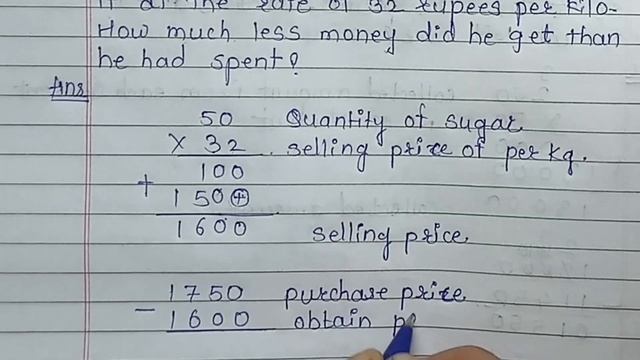 it at the rate of 32 rupees per kilo-
How much less money did he get than
he had spent?
Ans
50 Quantity of sugar
× 32 selling price of per kg.
100
+ 150⊕
1600 selling price
1750 purchase price
- 1600 obtain p